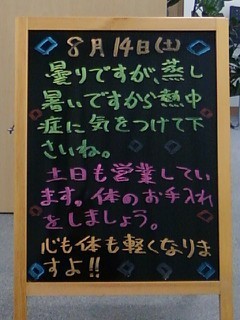 8月14日(土)
曇りですが、蒸し
暑いですから熱中
症に気をつけて下
さいね。
土日も営業してい
ます。体のお手入れ
をしましょう。
心も体も軽くなりま
すよ!!